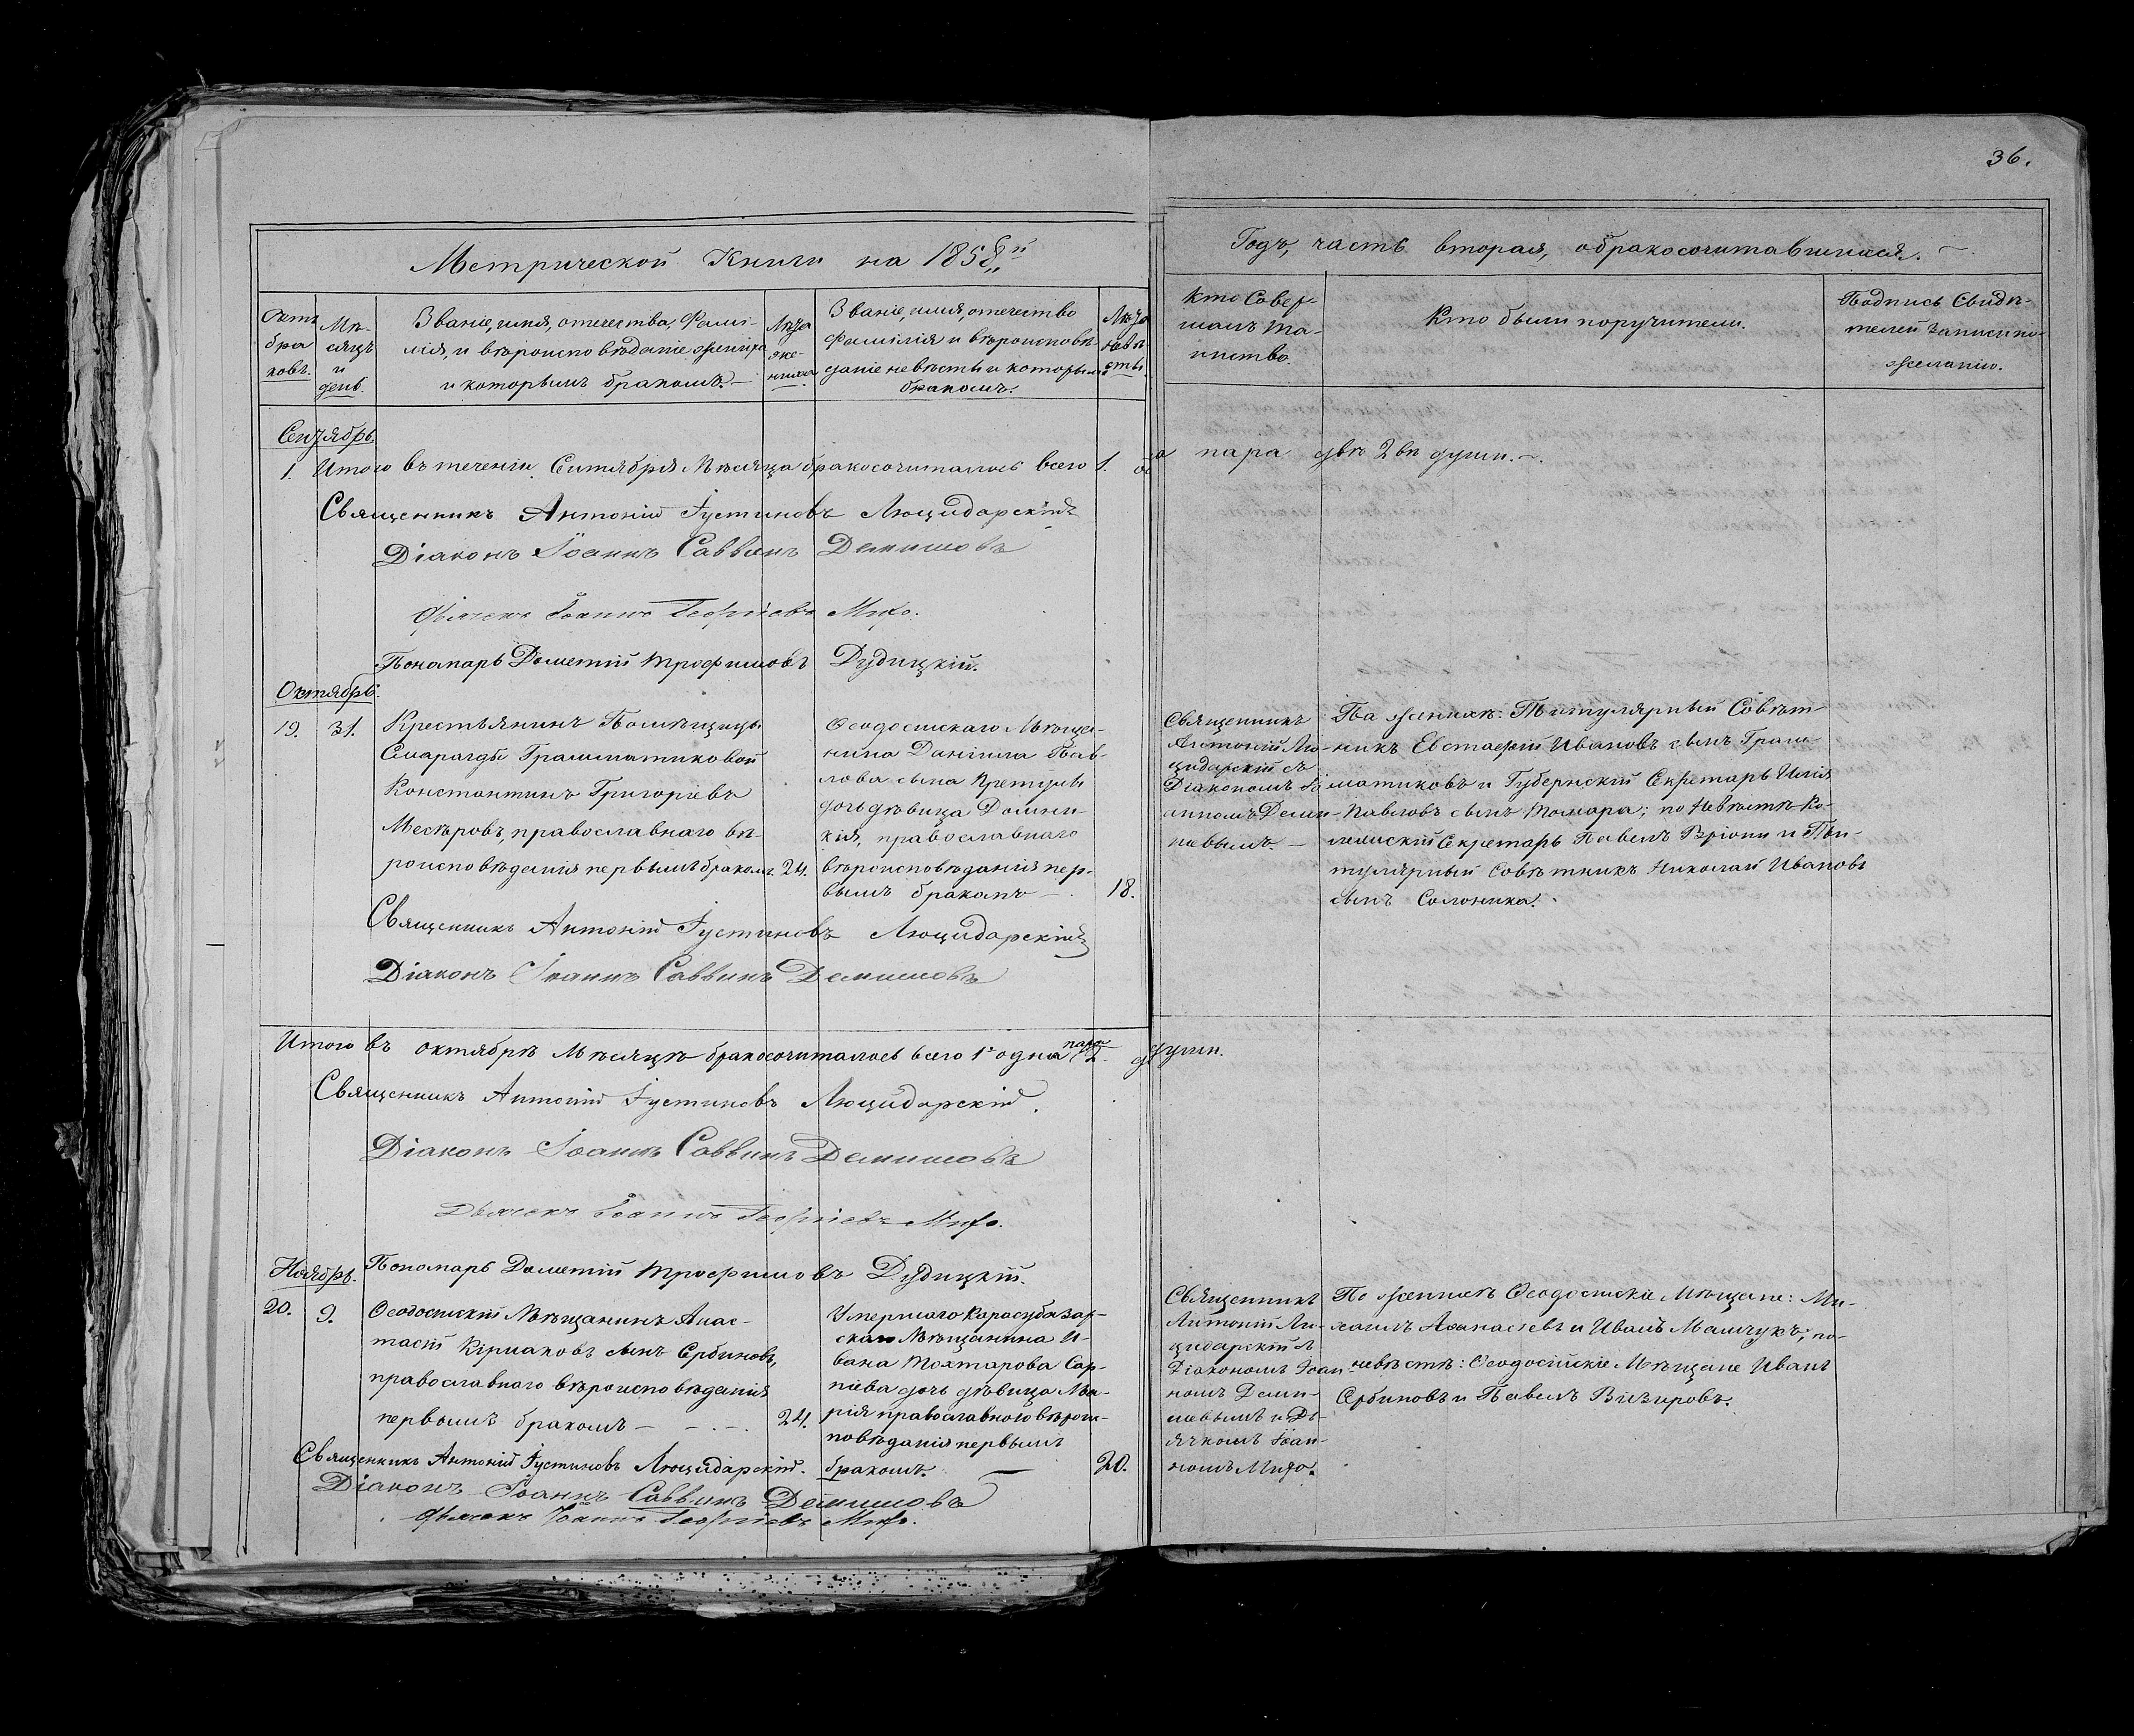 36.
Метрической Книги на 1858й
Годъ, часть вторая, о бракосочитавшихся.
Счетъ браковъ.
Мѣсяцъ и день.
Званіе, имя, отечество, Фами-
лія, и вѣроисповѣданіе жениха
и которымъ бракомъ. —
Лѣта жениха
Званіе, имя, отечество
фамилія и вѣроисповѣ-
даніе невѣсты и которымъ
бракомъ.
Лѣта невѣсты.
Кто Совер-
шалъ та-
инство.
Кто были поручители.
Подпись Свидѣ-
телей записи по
желанію.
Сентябрь.
1. Итого въ теченіи Сентября Мѣсяца бракосочиталось всего 1. одна пара двѣ 2вѣ души.
Священникъ Антоній Іустиновъ Люцидарскій
Діаконъ Іоаннъ Саввинъ Демишовъ
Дьячекъ Іоаннъ Георгіевъ Мифо.
Понамарь Дометій Трофимовъ Дудицкій.
Октябрь.
19. 31.
Крестьянинъ Помѣщицы
Смарагды Грамматиковой
Константинъ Григоріевъ
Месѣровъ, православнаго вѣ-
роисповѣданія первымъ бракомъ. 24.
Ѳеодосійскаго Мѣща-
нина Даніила Пав-
лова сына Кретули
дочь дѣвица Домни-
кія, православнаго
вѣроисповѣданія пер-
вымъ бракомъ — 18.
Священникъ
Антоній Лю-
цидарскій съ
Діакономъ Іо-
анномъ Деми-
шевымъ. —
По женихѣ: Титулярный Совѣт-
никъ Евстафій Ивановъ сынъ Грам-
матиковъ и Губернскій Секретарь Илія
Павловъ сынъ Томара; по Невѣстѣ Ко-
лежскій Секретарь Павелъ Вріони и Ти-
тулярный Совѣтникъ Николай Ивановъ
сынъ Солоника.
Священникъ Антоній Іустиновъ Люцидарскій
Діаконъ Іоаннъ Саввинъ Демишовъ
Итого въ октябрѣ Мѣсяцѣ бракосочиталось всего 1 одна пара 2 души.
Священникъ Антоній Іустиновъ Люцидарскій.
Діаконъ Іоаннъ Саввинъ Демишовъ
Дьячекъ Іоаннъ Георгіевъ Мифо.
Пономарь Дометій Трофимовъ Дудицкій.
Ноябрь.
20. 9.
Ѳеодосійскій Мѣщанинъ Анас-
тасій Киріаковъ сынъ Сербиновъ,
православнаго вѣроисповѣданія
первымъ бракомъ — 24.
Умершаго Карасубазар-
скаго Мѣщанина И-
вана Тохтарова Сар-
піева дочь дѣвица Ма-
рія православнаго вѣроис-
повѣданія первымъ
бракомъ. — 20.
Священникъ
Антоній Лю-
цидарскій съ
Діакономъ Іоан-
номъ Деми-
шевымъ и Дь-
ячкомъ Іоан-
номъ Мифо.
По женихѣ Ѳеодосійскіе Мѣщане: Ми-
хаилъ Аѳанасіевъ и Иванъ Мамчукъ; по
невѣстѣ: Ѳеодосійскіе Мѣщане Иванъ
Сербиновъ и Павелъ Визировъ.
Священникъ Антоній Іустиновъ Люцидарскій.
Діаконъ Іоаннъ Саввинъ Демишовъ
Дьячекъ Іоаннъ Георгіевъ Мифо.